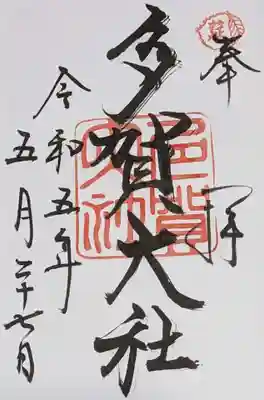 奉拝
多賀大社
令和五年
五月二十七日